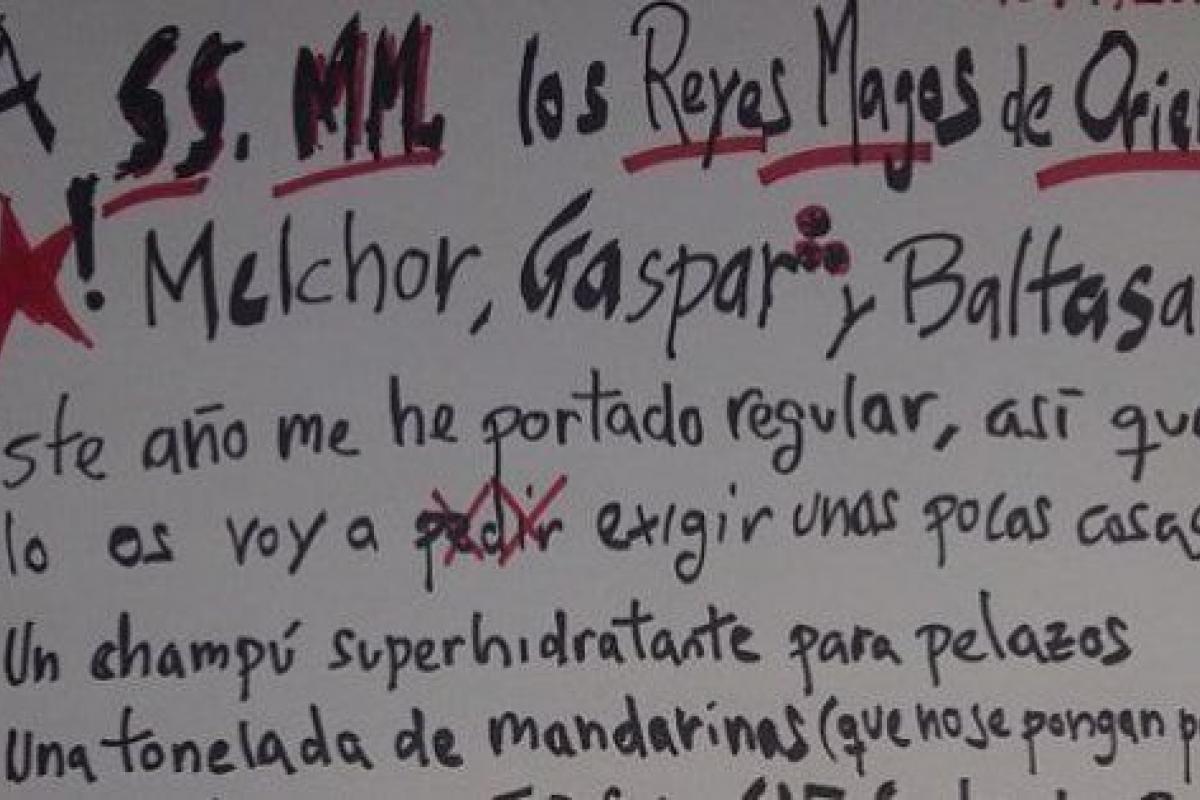 A SS. MM. los Reyes Magos de Orie
! Melchor, Gaspar y Baltasa
ste año me he portado regular, así que
lo os voy a pedir exigir unas pocas cosas
Un champú superhidratante para pelazos
Una tonelada de mandarinas (que no se pongan p